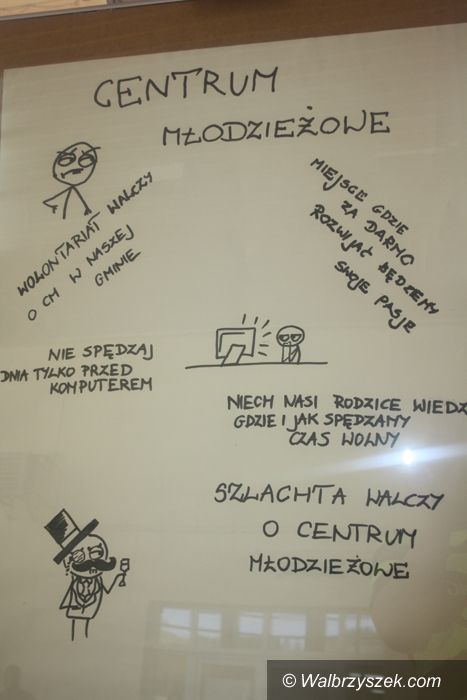 CENTRUM
MŁODZIEŻOWE
WOLONTARIAT WALCZY
O CM W NASZEJ
GMINIE
MIEJSCE GDZIE
ZA DARMO
ROZWIJAĆ BĘDZIEMY
SWOJE PASJE
NIE SPĘDZAJ
DNIA TYLKO PRZED
KOMPUTEREM
NIECH NASI RODZICE WIEDZ
GDZIE I JAK SPĘDZAMY
CZAS WOLNY
SZLACHTA WALCZY
O CENTRUM
MŁODZIEŻOWE
© Walbrzyszek.com